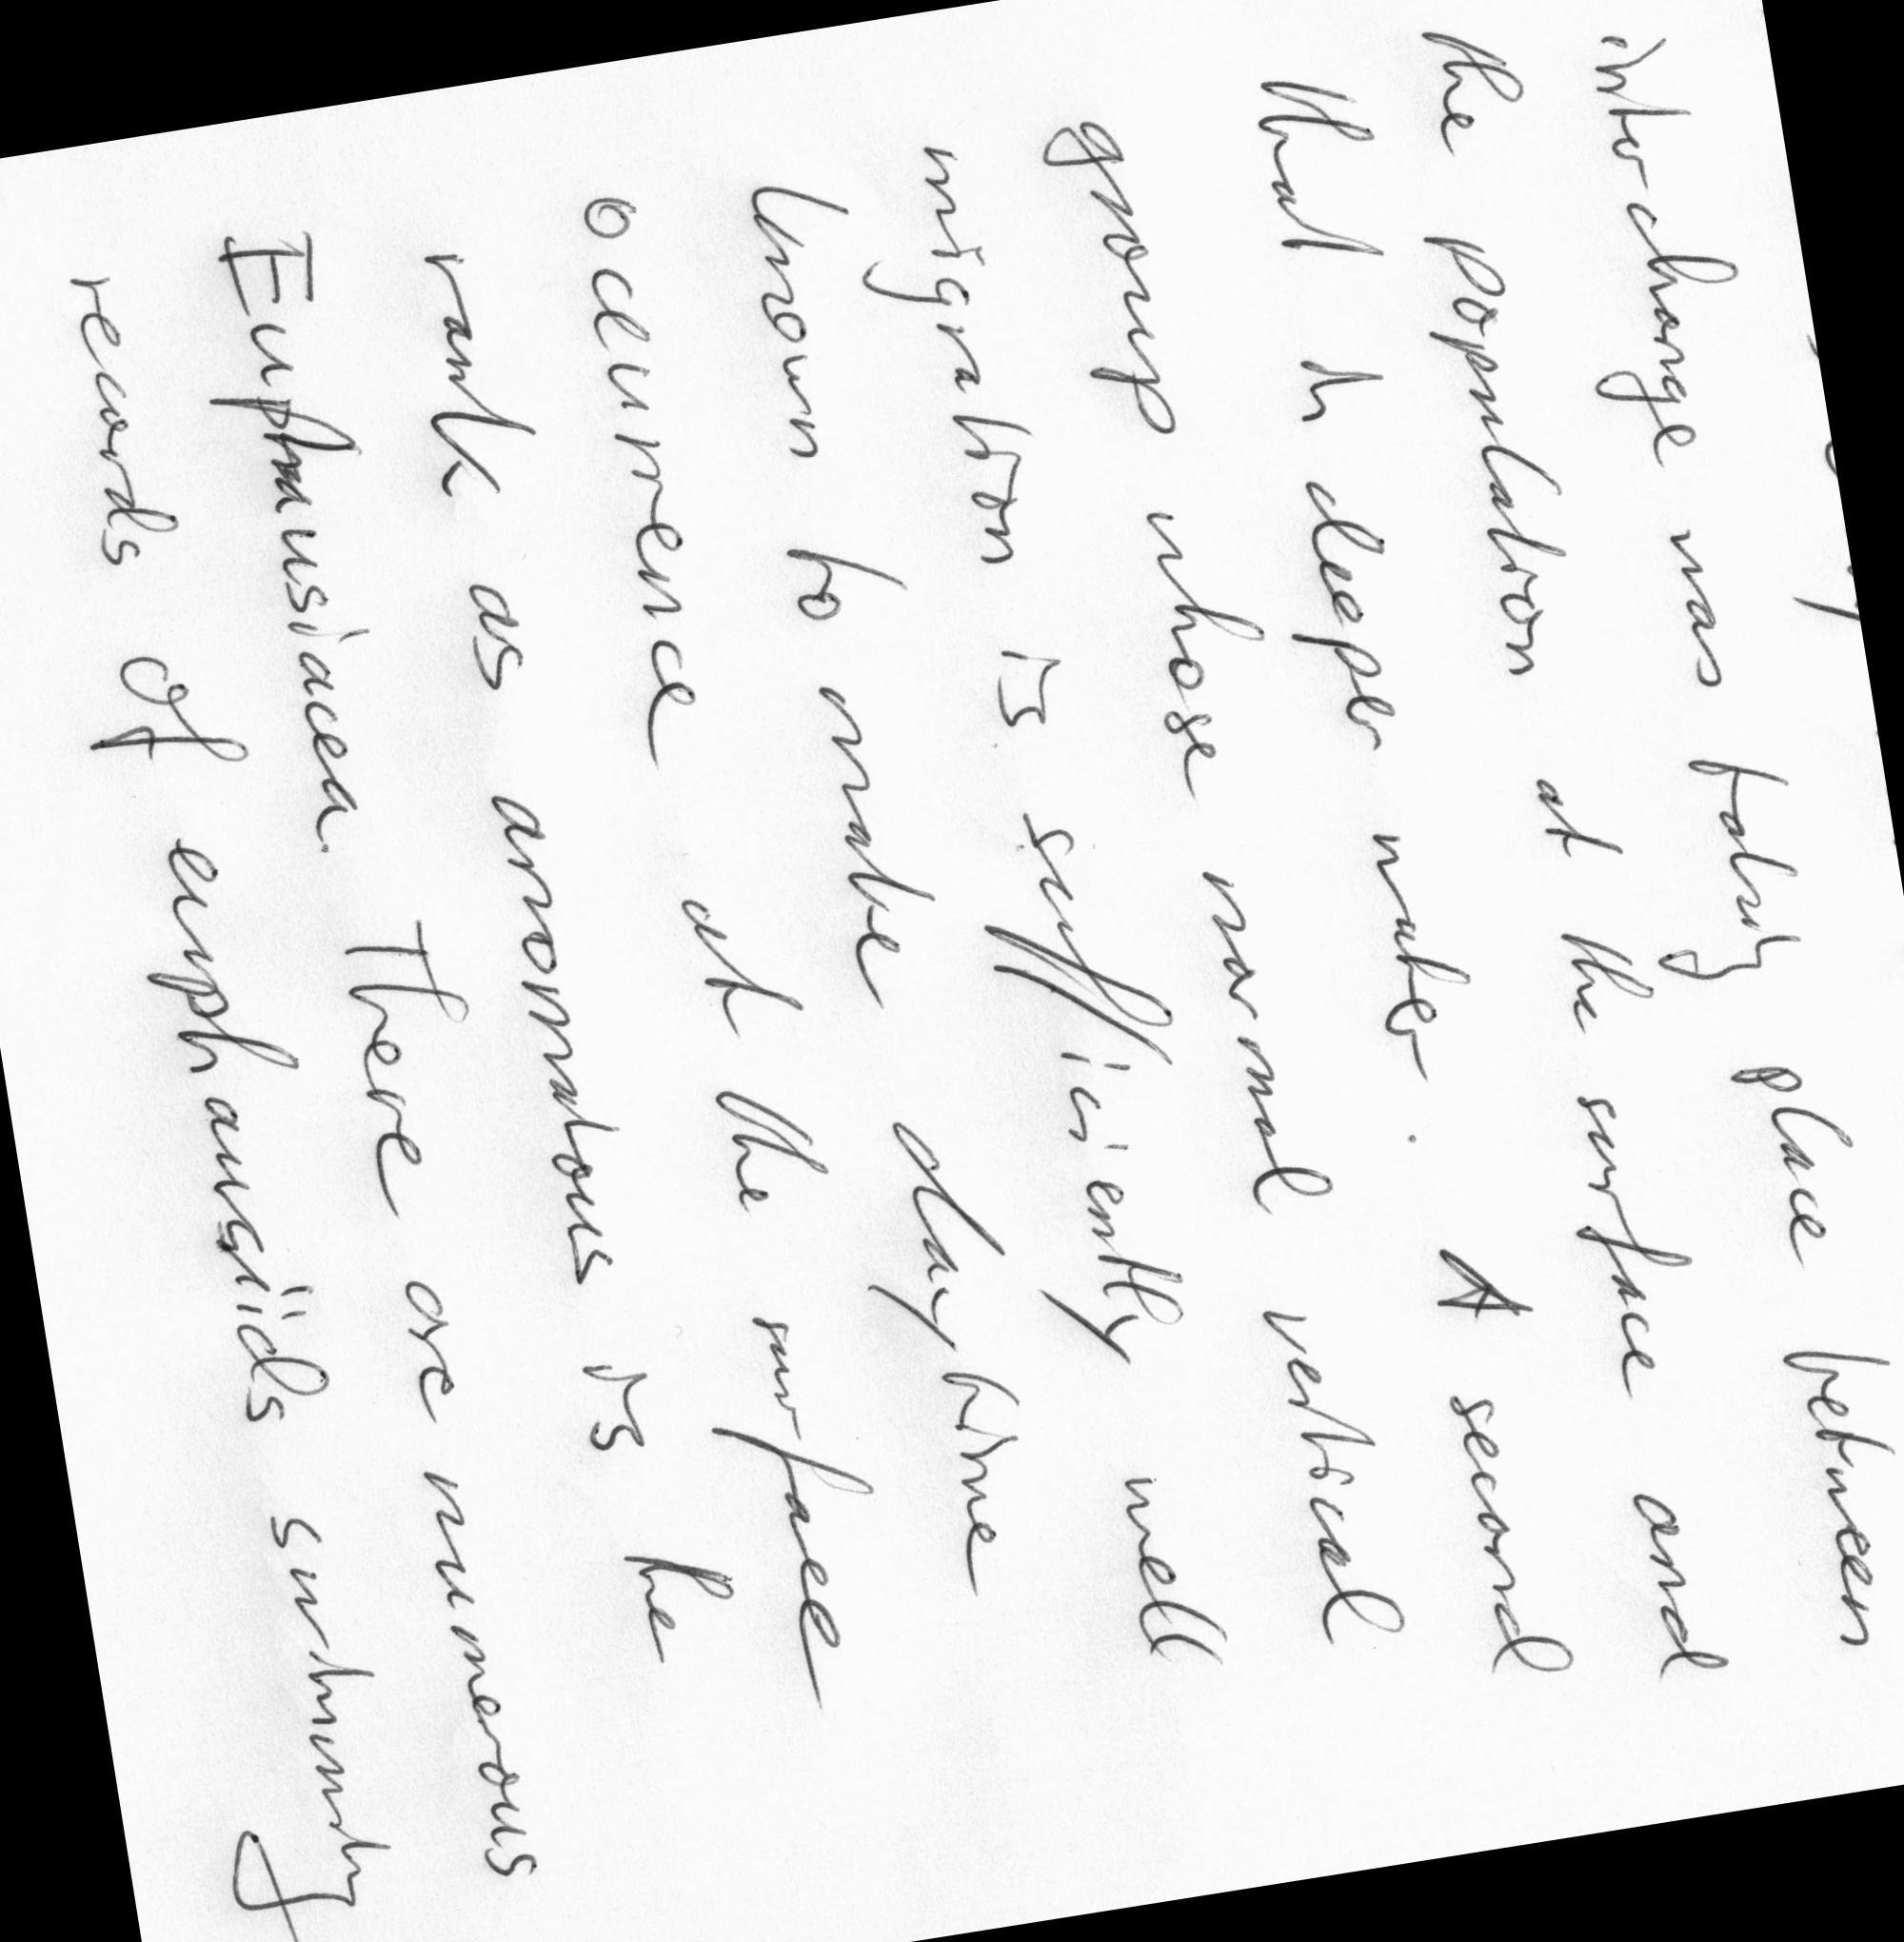 interchange was taking place between
the population at the surface and
that in deeper water. A second
group whose normal vertical
migration is sufficiently well
known to make daytime
occurrence at the surface
rank as anomalous is the
Euphausiacea. There are numerous
records of euphausiids swimming